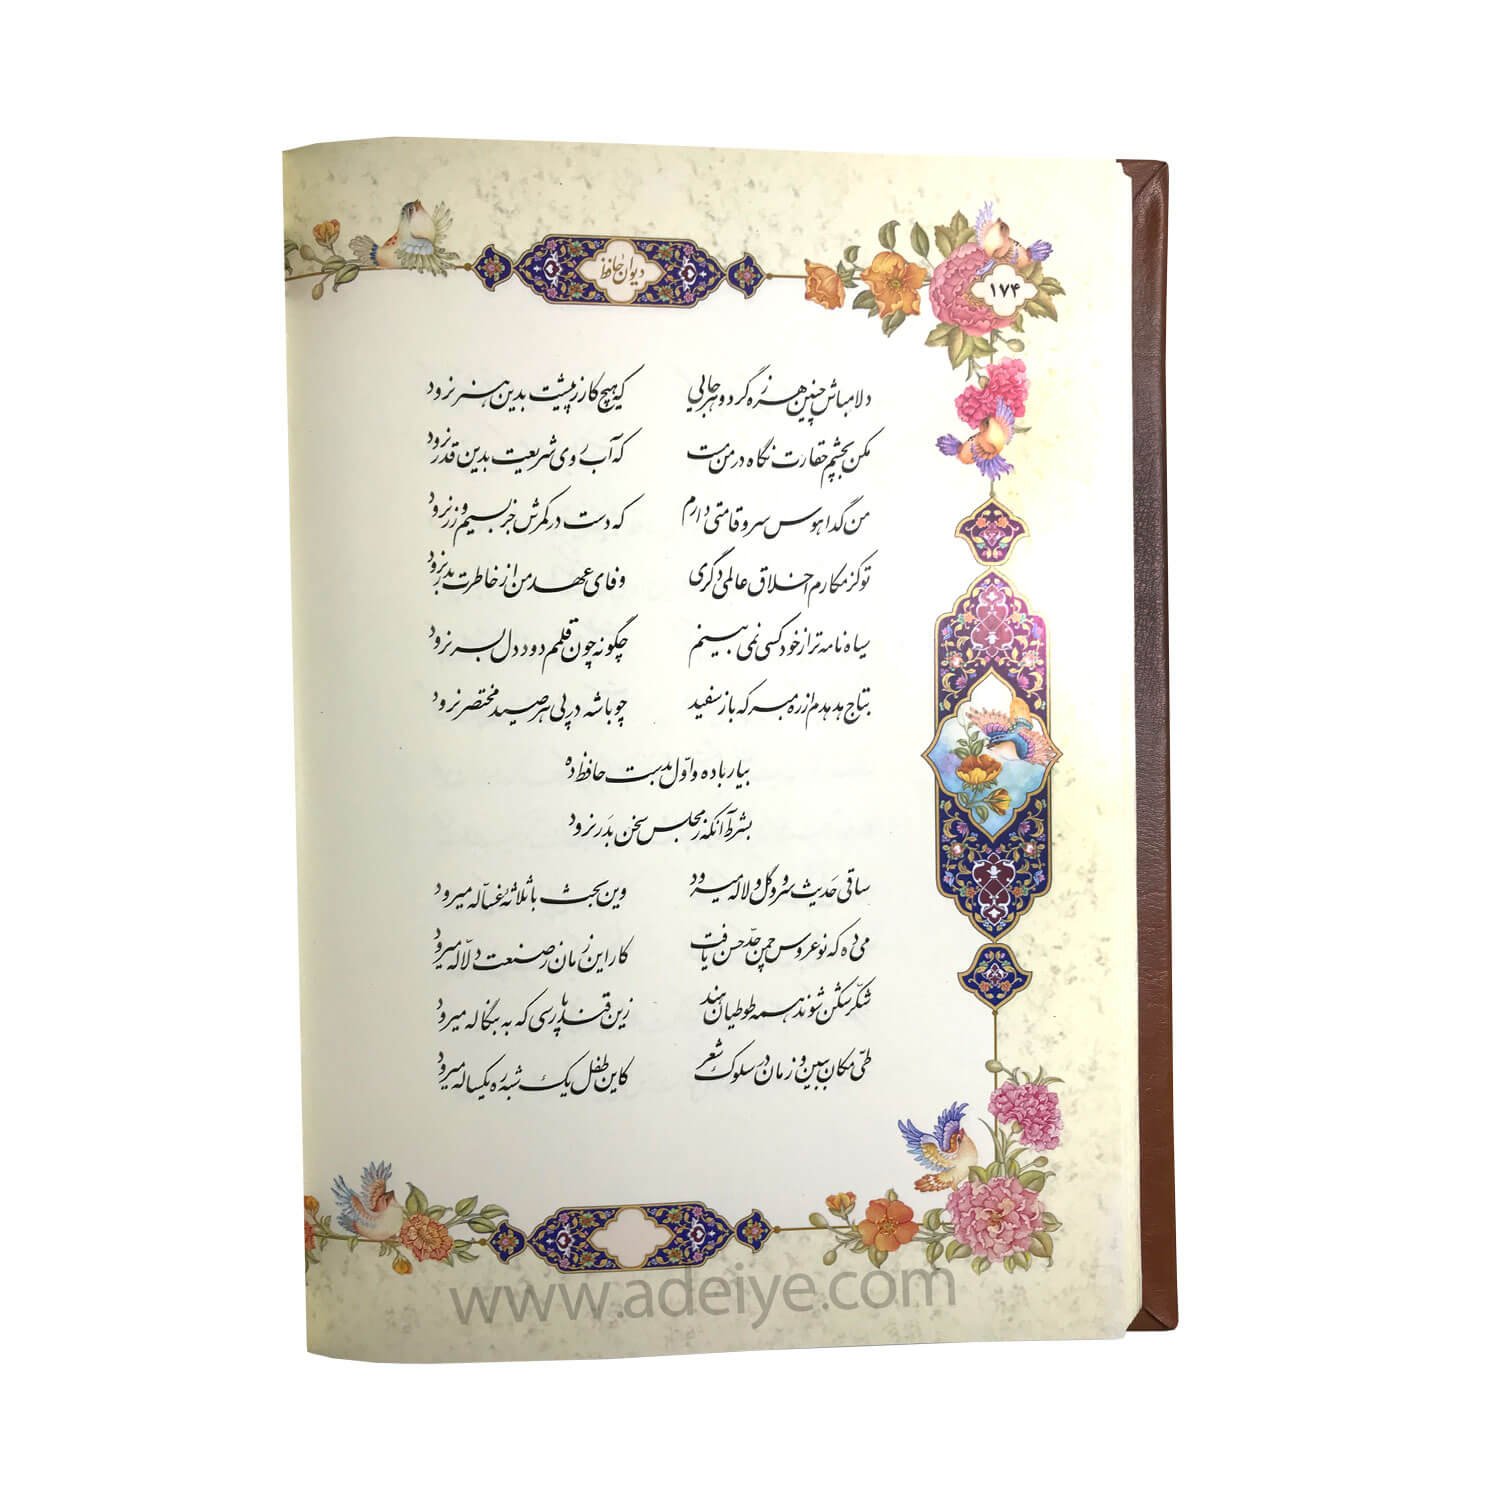 دیوان حافظ
۱۷۴
دلا مباش چنین هرزه گرد و هر جایی که هیچ کار ز پیشت بدین هنر نرود
مکن بچشم حقارت نگاه در من مست که آب روی شریعت بدین قدر نرود
من گدا هوس سرو قامتی دارم که دست در کمرش جز بسیم و زر نرود
تو کز مکارم اخلاق عالمی دگری وفای عهد من از خاطرت بدر نرود
سیاه نامه تر از خود کسی نمی بینم چگونه چون قلمم دود دل بسر نرود
بتاج هدهدم از ره مبر که باز سفید چو باشه در پی هر صید مختصر نرود
بیار باده و اوّل بدست حافظ ده
بشرط آنکه ز مجلس سخن بدَر نرود
ساقی حَدیث سرو و گل و لاله میرود وین بحث با ثلاثهٔ غسّاله میرود
می ده که نوعروس چمن حدّ حسن یافت کار این زمان ز صنعت دلّاله میرود
شکّر شکن شوند همه طوطیان هند زین قند پارسی که به بنگاله میرود
طیّ مکان ببین و زمان در سلوک شعر کاین طفل یک شبه ره یکساله میرود
www.adeiye.com